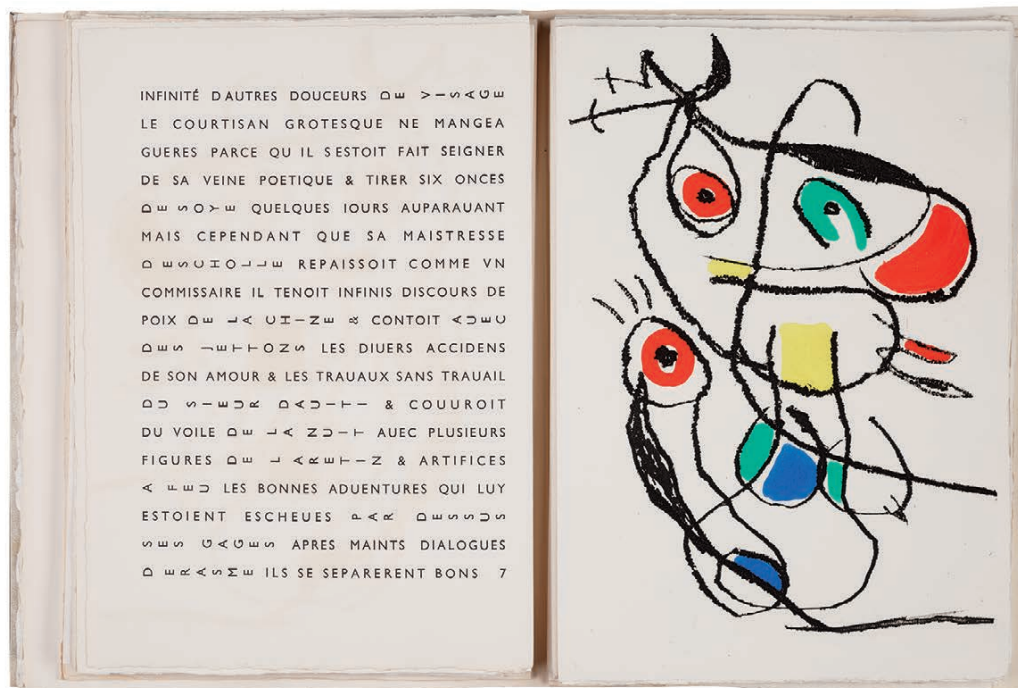 INFINITÉ DAUTRES DOUCEURS DE VISAGE
LE COURTISAN GROTESQUE NE MANGEA
GUERES PARCE QU IL SESTOIT FAIT SEIGNER
DE SA VEINE POETIQUE & TIRER SIX ONCES
DE SOYE QUELQUES IOURS AUPARAUANT
MAIS CEPENDANT QUE SA MAISTRESSE
DESCHOLLE REPAISSOIT COMME VN
COMMISSAIRE IL TENOIT INFINIS DISCOURS DE
POIX DE LA CHINE & CONTOIT AUEC
DES JETTONS LES DIUERS ACCIDENS
DE SON AMOUR & LES TRAUAUX SANS TRAUAIL
DU SIEUR DAUITI & COUUROIT
DU VOILE DE LA NUIT AUEC PLUSIEURS
FIGURES DE LARETIN & ARTIFICES
A FEU LES BONNES ADUENTURES QUI LUY
ESTOIENT ESCHEUES PAR DESSUS
SES GAGES APRES MAINTS DIALOGUES
DERASME ILS SE SEPARERENT BONS 7